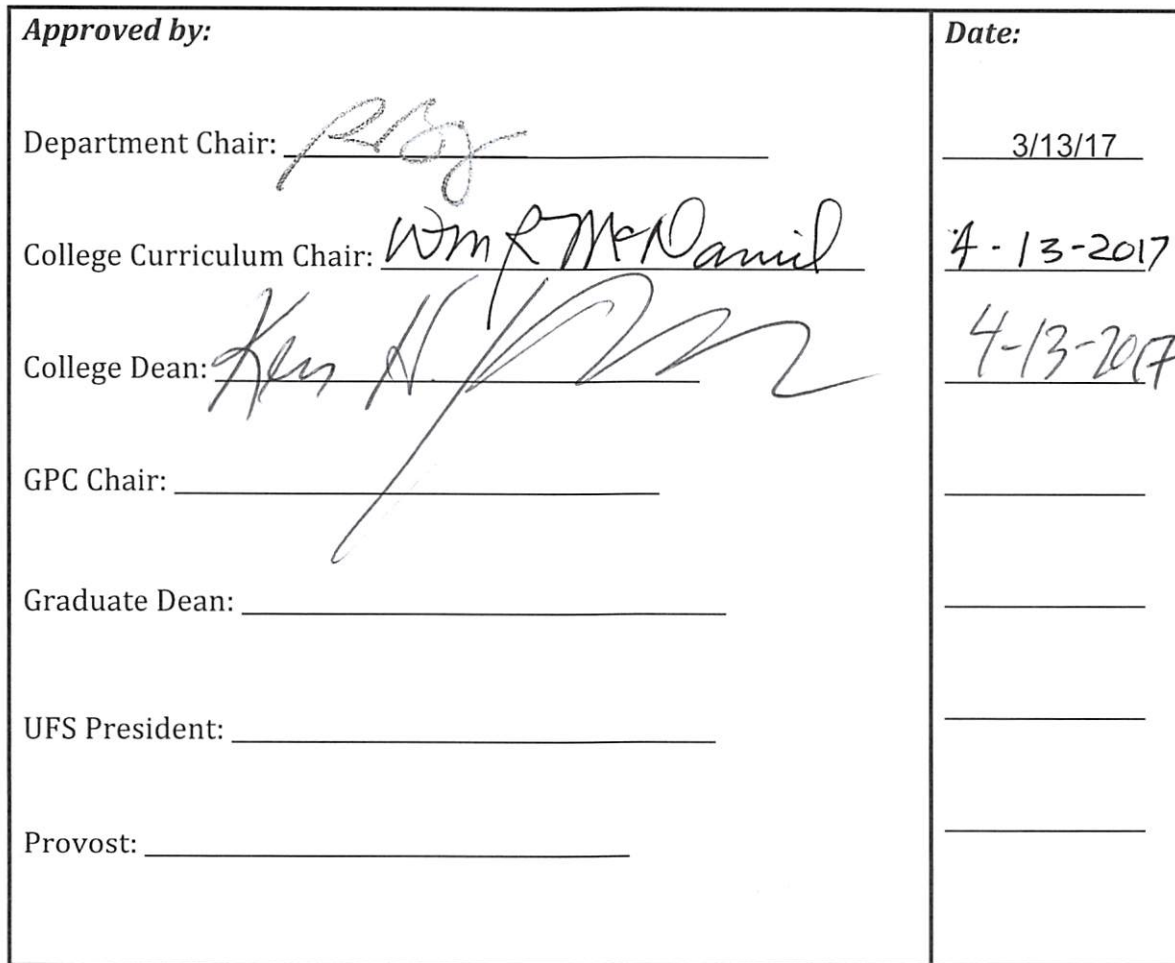 Approved by: Date:
Department Chair: 3/13/17
College Curriculum Chair: Wm R McDaniel 4-13-2017
College Dean: Ken H. 4-13-2017
GPC Chair:
Graduate Dean:
UFS President:
Provost: